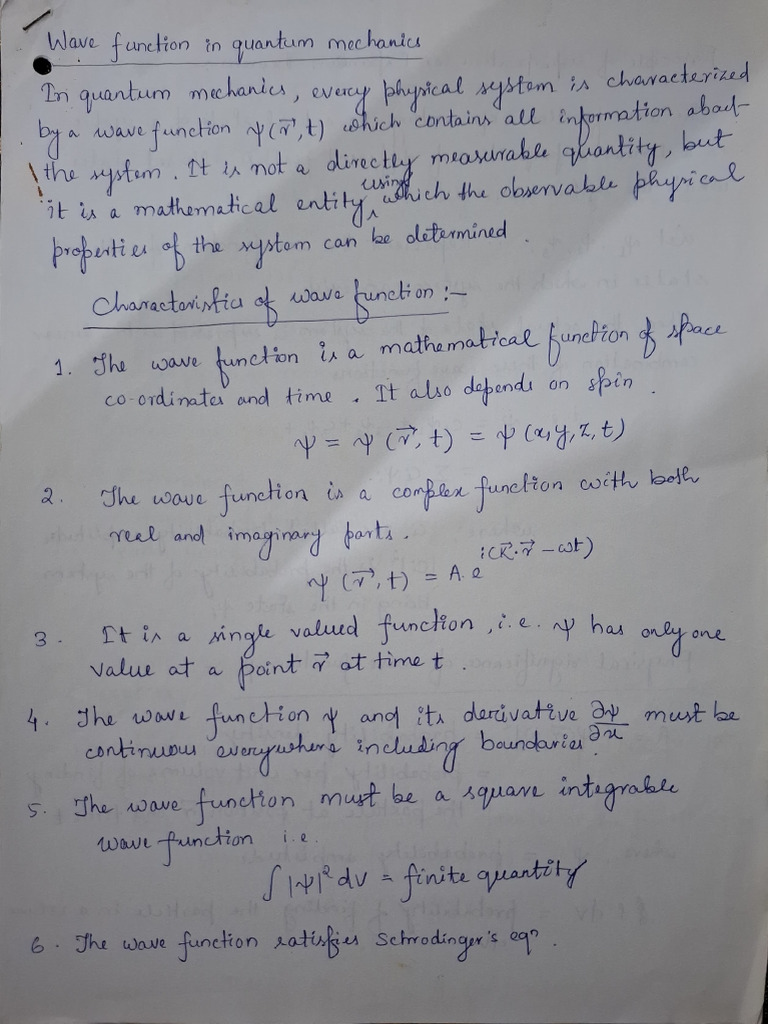 Wave function in quantum mechanics
In quantum mechanics, every physical system is characterized
by a wave function ψ(r⃗,t) which contains all information about
the system. It is not a directly measurable quantity, but
it is a mathematical entity ^using which the observable physical
properties of the system can be determined.
Characteristics of wave function :-
1. The wave function is a mathematical function of space
co-ordinates and time. It also depends on spin.
ψ = ψ(r⃗, t) = ψ(x,y,z,t)
2. The wave function is a complex function with both
real and imaginary parts.
ψ(r⃗,t) = A.e^{i(k⃗·r⃗-ωt)}
3. It is a single valued function, i.e. ψ has only one
value at a point r⃗ at time t.
4. The wave function ψ and its derivative ∂ψ/∂x must be
continuous everywhere including boundaries.
5. The wave function must be a square integrable
wave function i.e.
∫|ψ|² dv = finite quantity
6. The wave function satisfies Schrodinger's eqn.